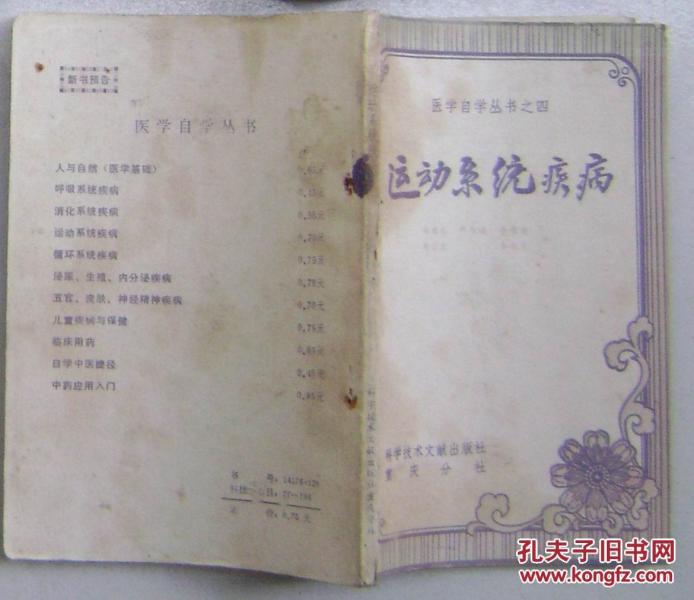 新书预告
医学自学丛书
人与自然（医学基础）
呼吸系统疾病
消化系统疾病
运动系统疾病
循环系统疾病 0.75元
泌尿、生殖、内分泌疾病 0.70元
五官、皮肤、神经精神疾病 0.70元
儿童疾病与保健 0.75元
临床用药
自学中医捷径 0.45元
中药应用入门 0.85元
书 号：
科技
定 价：0.70元
科学技术文献出版社重庆分社
医学自学丛书之四
运动系统疾病
科学技术文献出版社
重庆分社
孔夫子旧书网
www.kongfz.com